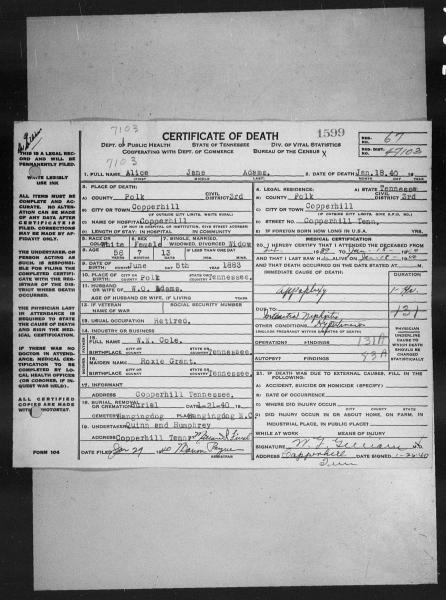 7103
CERTIFICATE OF DEATH
1599
REG. NO. 67
DEPT. OF PUBLIC HEALTH STATE OF TENNESSEE DIV. OF VITAL STATISTICS
COOPERATING WITH DEPT. OF COMMERCE BUREAU OF THE CENSUS X
REG. DIST. NO. 47103
7103
1. FULL NAME Alice Jane Adams. 2. DATE OF DEATH Jan.18.40 19
FIRST MIDDLE LAST MONTH DAY YEAR
THIS IS A LEGAL RECORD AND WILL BE PERMANENTLY FILED.
WRITE LEGIBLY
USE INK
ALL ITEMS MUST BE COMPLETE AND ACCURATE. NO ALTERATION CAN BE MADE OF ANY DATA AFTER CERTIFICATE IS FILED. CORRECTIONS MAY BE MADE BY AFFIDAVIT ONLY.
UNDERTAKER OR PERSON ACTING AS SUCH, IS RESPONSIBLE FOR FILING THE COMPLETED CERTIFICATE WITH THE REGISTRAR OF THE DISTRICT WHERE DEATH OCCURRED.
THE PHYSICIAN LAST IN ATTENDANCE IS REQUIRED TO STATE THE CAUSE OF DEATH AND SIGN THE MEDICAL CERTIFICATION.
IF THERE WAS NO DOCTOR IN ATTENDANCE, MEDICAL CERTIFICATION TO BE COMPLETED BY LOCAL HEALTH OFFICER (OR CORONER, IF INQUEST WAS HELD).
ALL CERTIFIED COPIES ARE MADE BY PHOTOSTAT.
FORM 104
3. PLACE OF DEATH:
A. COUNTY Polk CIVIL DISTRICT 3rd
B. CITY OR TOWN Copperhill
(IF OUTSIDE CITY LIMITS, WRITE RURAL)
C. NAME OF HOSPITAL Copperhill
(IF NOT IN HOSPITAL OR INSTITUTION, GIVE STREET ADDRESS)
D. LENGTH OF STAY IN HOSPITAL IN COMMUNITY
4. LEGAL RESIDENCE: A. STATE Tennessee
B. COUNTY Polk CIVIL DISTRICT 3rd
C. CITY OR TOWN Copperhill
(IF OUTSIDE CITY LIMITS, GIVE R.F.D. NO.)
D. STREET NO. Copperhill Tenn.
E. IF FOREIGN BORN HOW LONG IN U.S.A. YRS.
5. RACE OR COLOR White 6. SEX Female 7. SINGLE, MARRIED, WIDOWED, DIVORCED Widow
8. AGE 56 7 13 IF LESS THAN ONE DAY
9. DATE OF BIRTH June 5th 1883
10. PLACE OF BIRTH Polk Tennessee.
11. HUSBAND OR WIFE W.O. Adams.
AGE OF HUSBAND OR WIFE, IF LIVING YEARS
12. IF VETERAN NAME OF WAR SOCIAL SECURITY NUMBER
13. USUAL OCCUPATION Retired.
14. INDUSTRY OR BUSINESS
15. FULL NAME W.K. Cole.
BIRTHPLACE Tennessee.
16. MAIDEN NAME Roxie Grant.
BIRTHPLACE Tennessee.
17. INFORMANT
ADDRESS Copperhill Tennessee.
18. BURIAL, REMOVAL OR CREMATION Burial 1-21-40 19
19. UNDERTAKER Quinn and Humphrey
ADDRESS Copperhill Tenn.
DATE FILED Jan 29 1940
REGISTRAR
MEDICAL CERTIFICATION
20. I HEREBY CERTIFY THAT I ATTENDED THE DECEASED FROM
AND THAT I LAST SAW H ALIVE ON Jan-18-1940
AND THAT DEATH OCCURRED ON THE DATE STATED AT M.
IMMEDIATE CAUSE OF DEATH: DURATION
Apoplexy
DUE TO Interstitial Nephritis 131
OTHER CONDITIONS Hypertension
(INCLUDE PREGNANCY WITHIN 3 MONTHS OF DEATH)
PHYSICIAN UNDERLINE CAUSE TO WHICH DEATH SHOULD BE CHARGED STATISTICALLY
OPERATION? FINDINGS 131A
AUTOPSY? FINDINGS 83A
21. IF DEATH WAS DUE TO EXTERNAL CAUSES, FILL IN THE FOLLOWING:
A. ACCIDENT, SUICIDE OR HOMICIDE (SPECIFY)
B. DATE OF OCCURRENCE
C. WHERE DID INJURY OCCUR
D. DID INJURY OCCUR IN OR ABOUT HOME, ON FARM, IN INDUSTRIAL PLACE, IN PUBLIC PLACE?
WHILE AT WORK MEANS OF INJURY
SIGNATURE
ADDRESS Copperhill DATE SIGNED 1-26-40
Tenn